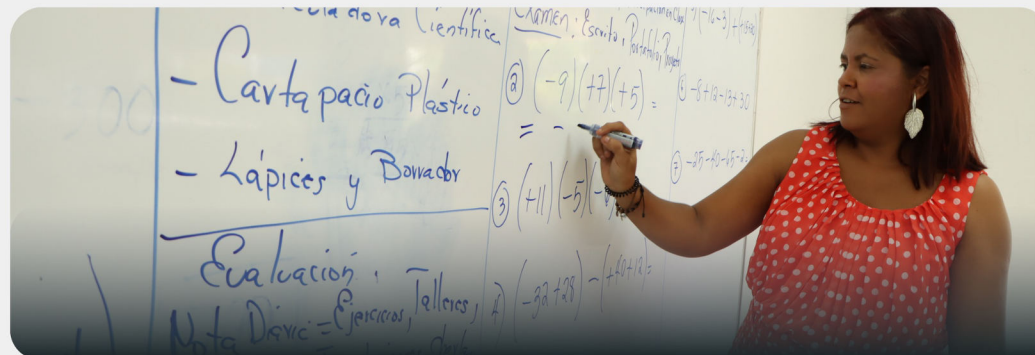 Científica
- Cartapacio Plástico
- Lápices y Borrador
Evaluación.
Nota Diaria = Ejercicios, Talleres,
Examen: Escrito,
② (-9)(+7)(+5) =
= -
③ (+11)(-5)(-
4) (-32+28) - (+40+12)=
⑥ -8+12-13+30
⑦ -25-40-65-2=